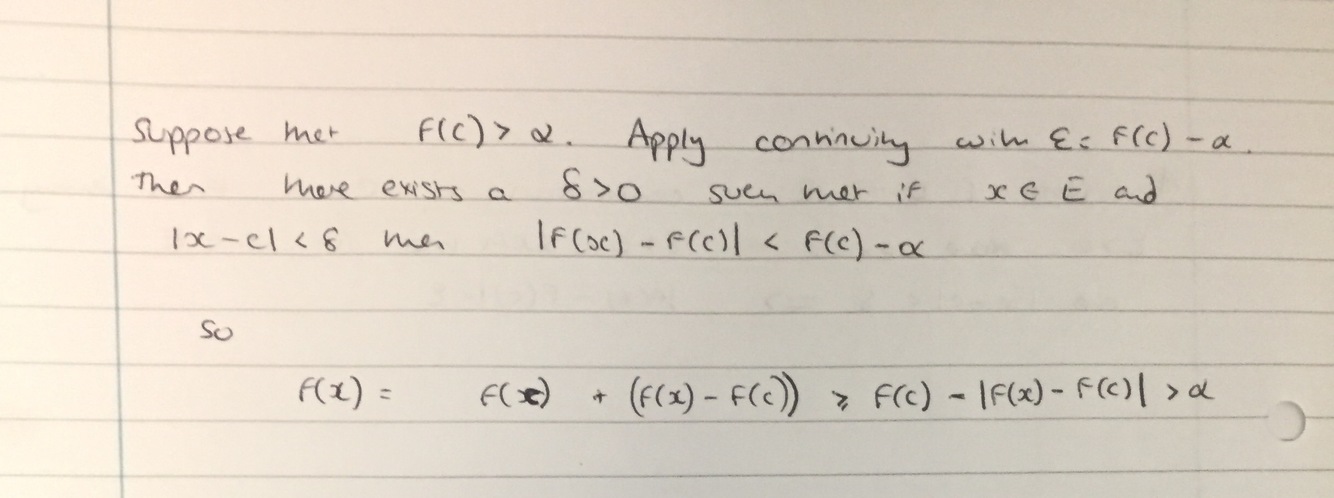 Suppose that f(c) > α. Apply continuity with ε = f(c) - α.
Then there exists a δ > 0 such that if x ∈ E and
|x - c| < δ then |f(x) - f(c)| < f(c) - α
So
f(x) = f(c) + (f(x) - f(c)) ⩾ f(c) - |f(x) - f(c)| > α